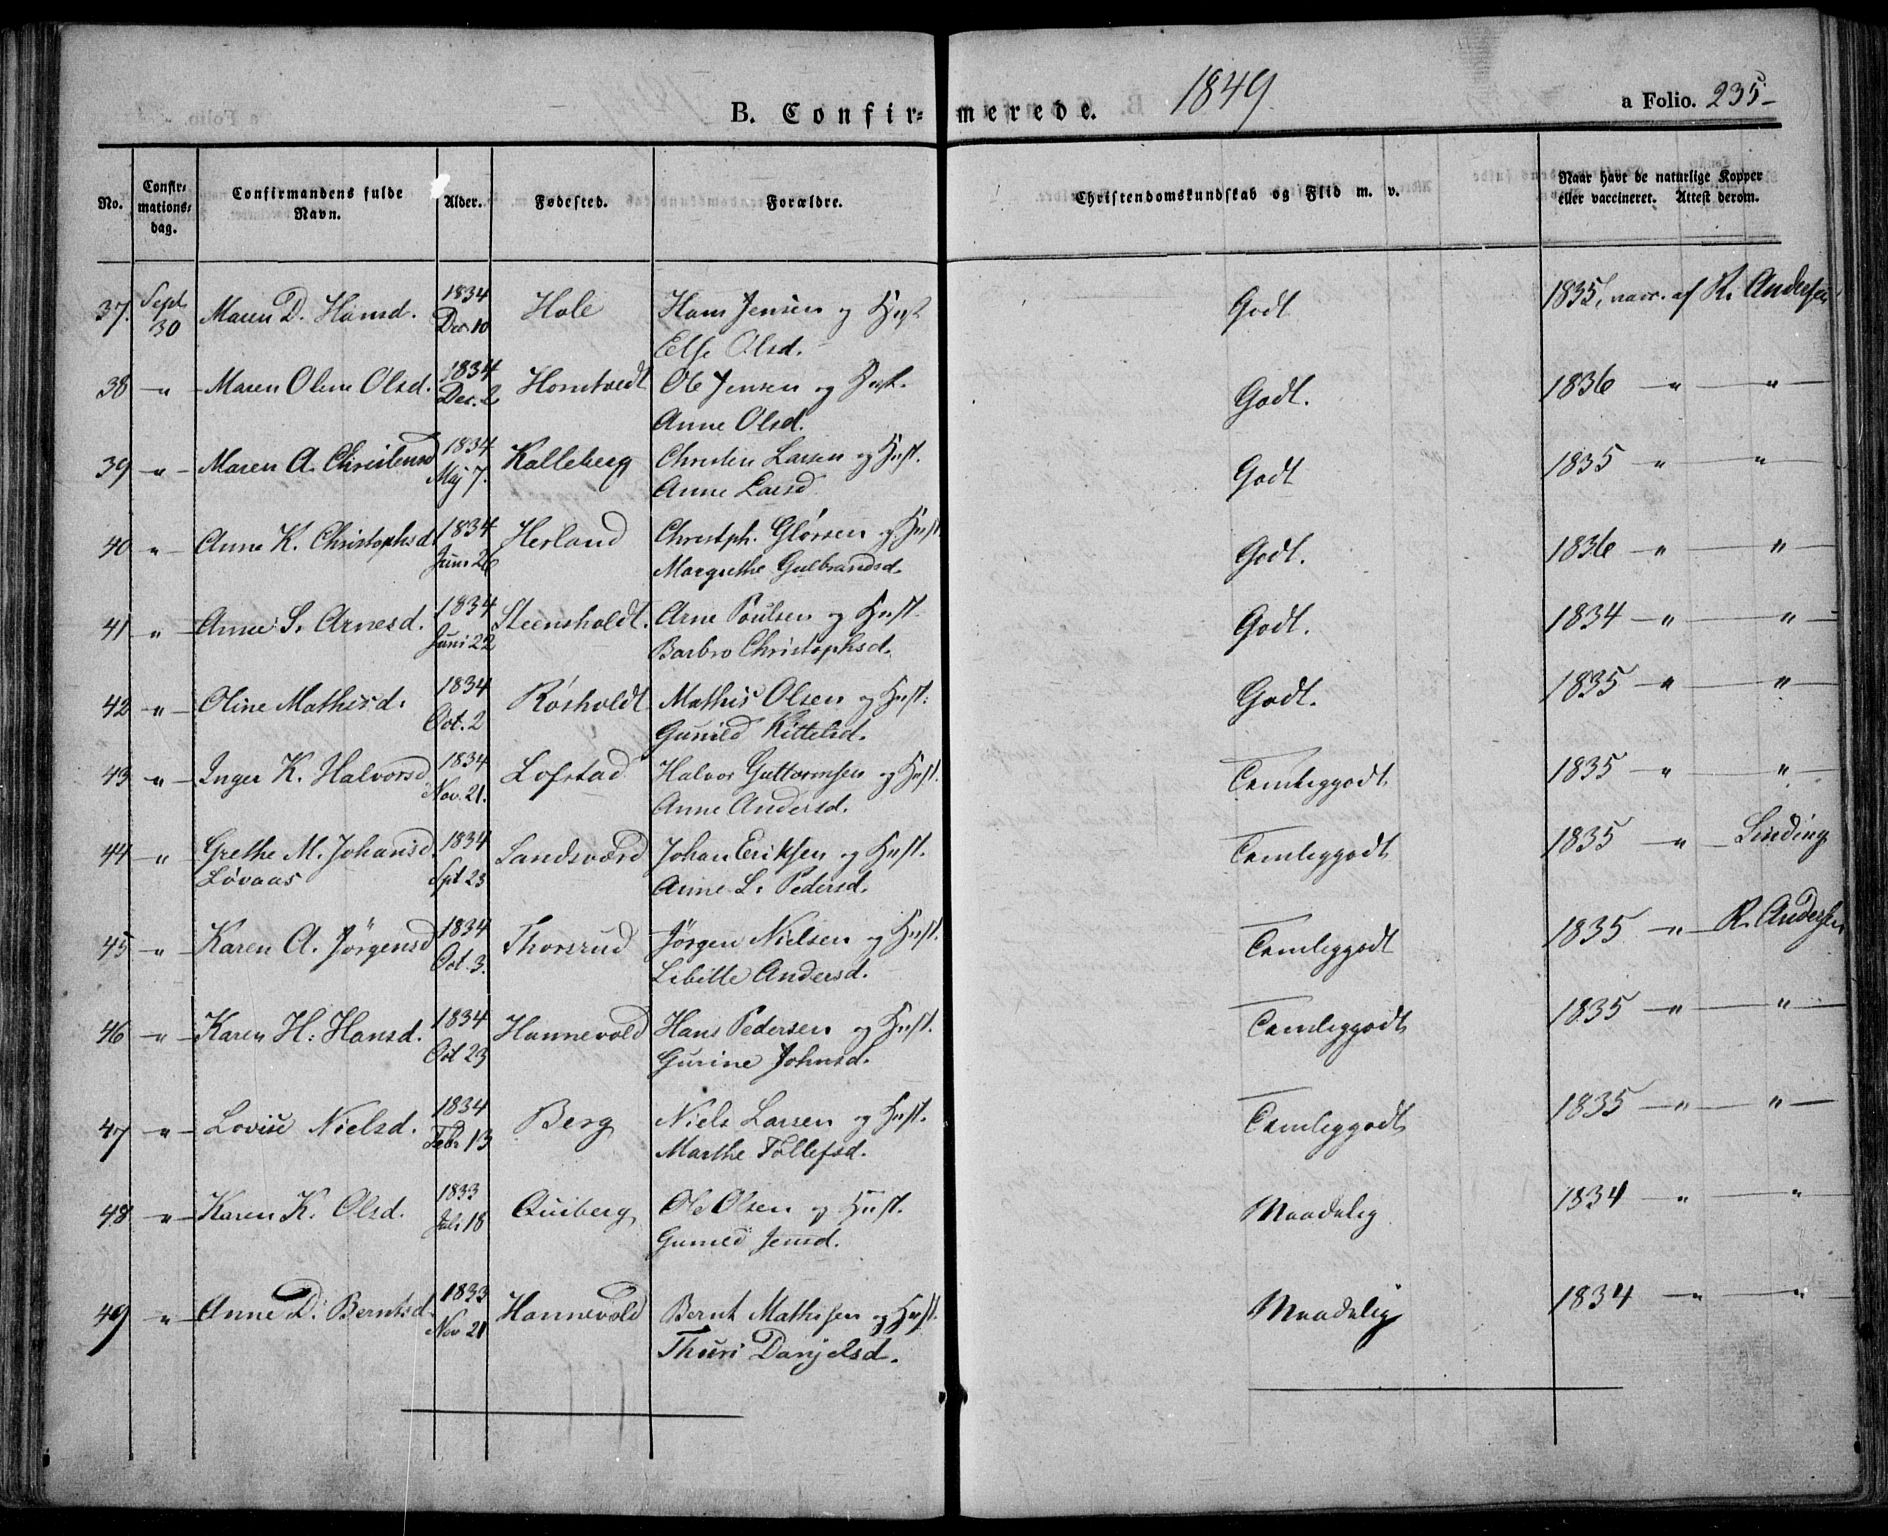 B. Confirmerede. 1849. a Folio. 235-
No. Confirmationsdag. Confirmandens fulde Navn. Alder. Fødested. Forældre. Christendomskundskab og Flid m. v. Naar havt de naturlige Kopper eller vaccineret. Attest derom.
37. Sept 30 Maren D. Hansd. 1834 Dec. 10 Hole Hans Jensen og Hust Godt 1835, vacc. af R. Andersen
Else Olsd.
38 " Maren Oline Olsd. 1834 Dec. 2 Homtvedt Ole Jensen og Hust. Godt. 1836 " "
Anne Olsd.
39 " Maren A. Christensd 1834 Maj 7. Kalleberg Christen Larsen og Hust. Godt 1835 " "
Anne Larsd
40 " Anne K. Christophsd 1834 Juni 26 Herland Christph. Glørsen og Hust Godt. 1836 " "
Margrethe Gulbrandsd.
41 " Anne S. Arnesd. 1834 Juni 22 Steensholdt. Arne Poulsen og Hust Godt. 1834 " "
Barbro Christophsd.
42 " Oline Mathisd. 1834 Oct. 2 Røsholdt Mathis Olsen og Hust: Godt. 1835 " "
Gunild Kittelsd.
43 " Inger K. Halvorsd 1834 Nov. 21. Lofstad Halvor Guttormsen og Hust. Temleggodt 1835 " "
Anne Andersd.
44 " Grethe M. Johansd. 1834 Spt 23 Sandsværd Johan Eriksen og Hust. Temleggodt 1835 " Linding
Løvaas Anne L. Pedersd.
45 " Karen A. Jørgensd 1834 Oct. 3. Thorsrud Jørgen Nielsen og Hust. Temleggodt 1835 " R. Andersen
Libitte Andersd.
46 " Karen H: Hansd. 1834 Oct 23 Hannevold Hans Pedersen og Hust. Temleggodt 1835 " "
Gurine Johnsd.
47 " Lovise Nielsd. 1834 Febr 13 Berg Niels Larsen og Hust. Temleggodt 1835 " "
Marthe Tollefsd.
48 " Karen K. Olsd. 1833 Juli 18 Quiberg Ole Olsen og Hust. Maadelig 1834 " "
Gunild Jensd.
49 " Anne D. Berntsd 1833 Nov. 21 Hannevold Bernt Mathisen og Hust. Maadelig 1834 " "
Thuri Danjelsd.